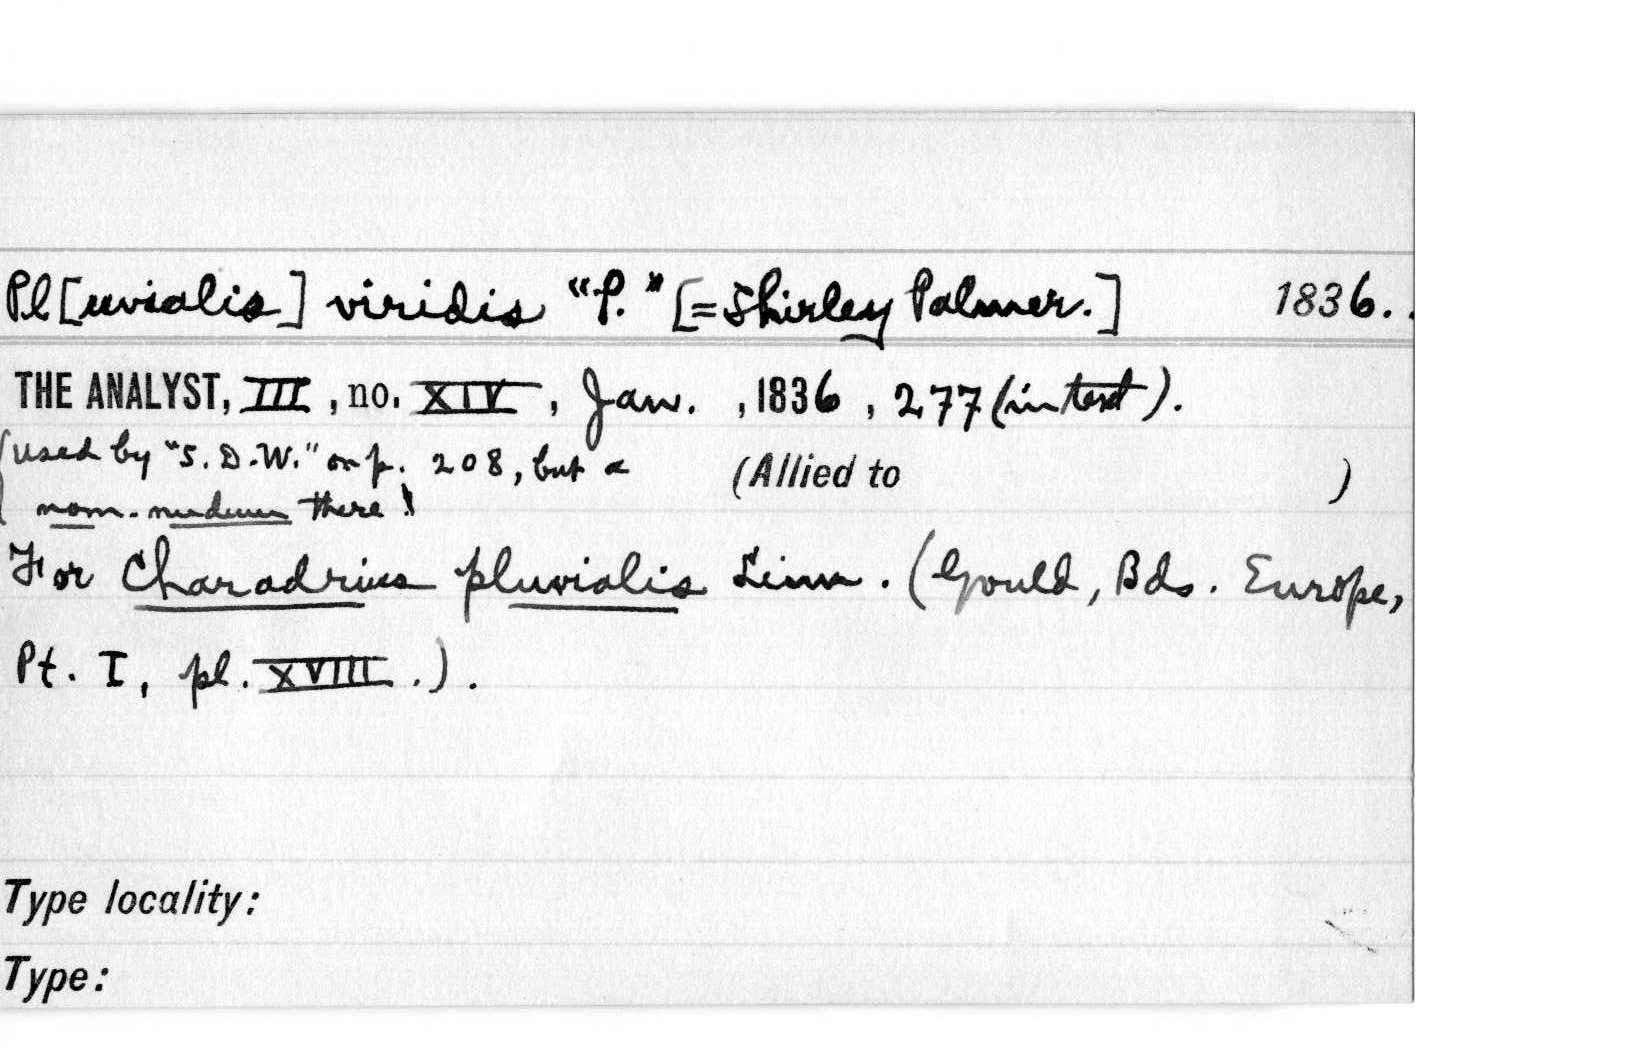 Pl[uvialis] viridis "P." [=Shirley Palmer.] 1836..
THE ANALYST, III, no. XIV, Jan., 1836, 277 (in text).
(used by "S.D.W." on p. 208, but a
nom. nudum there!
(Allied to )
For Charadrius pluvialis Linn. (Gould, Bds. Europe,
Pt. I, pl. XVIII.).
Type locality:
Type: